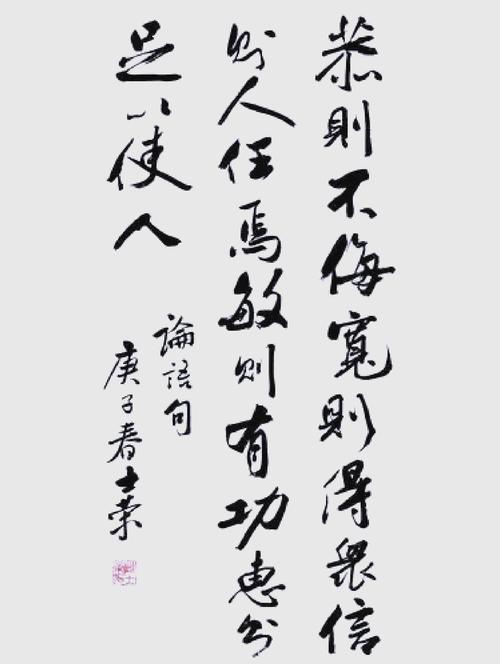 恭則不侮寬則得眾信
則人任焉敏則有功惠則
足以使人
論語句
庚子春士榮